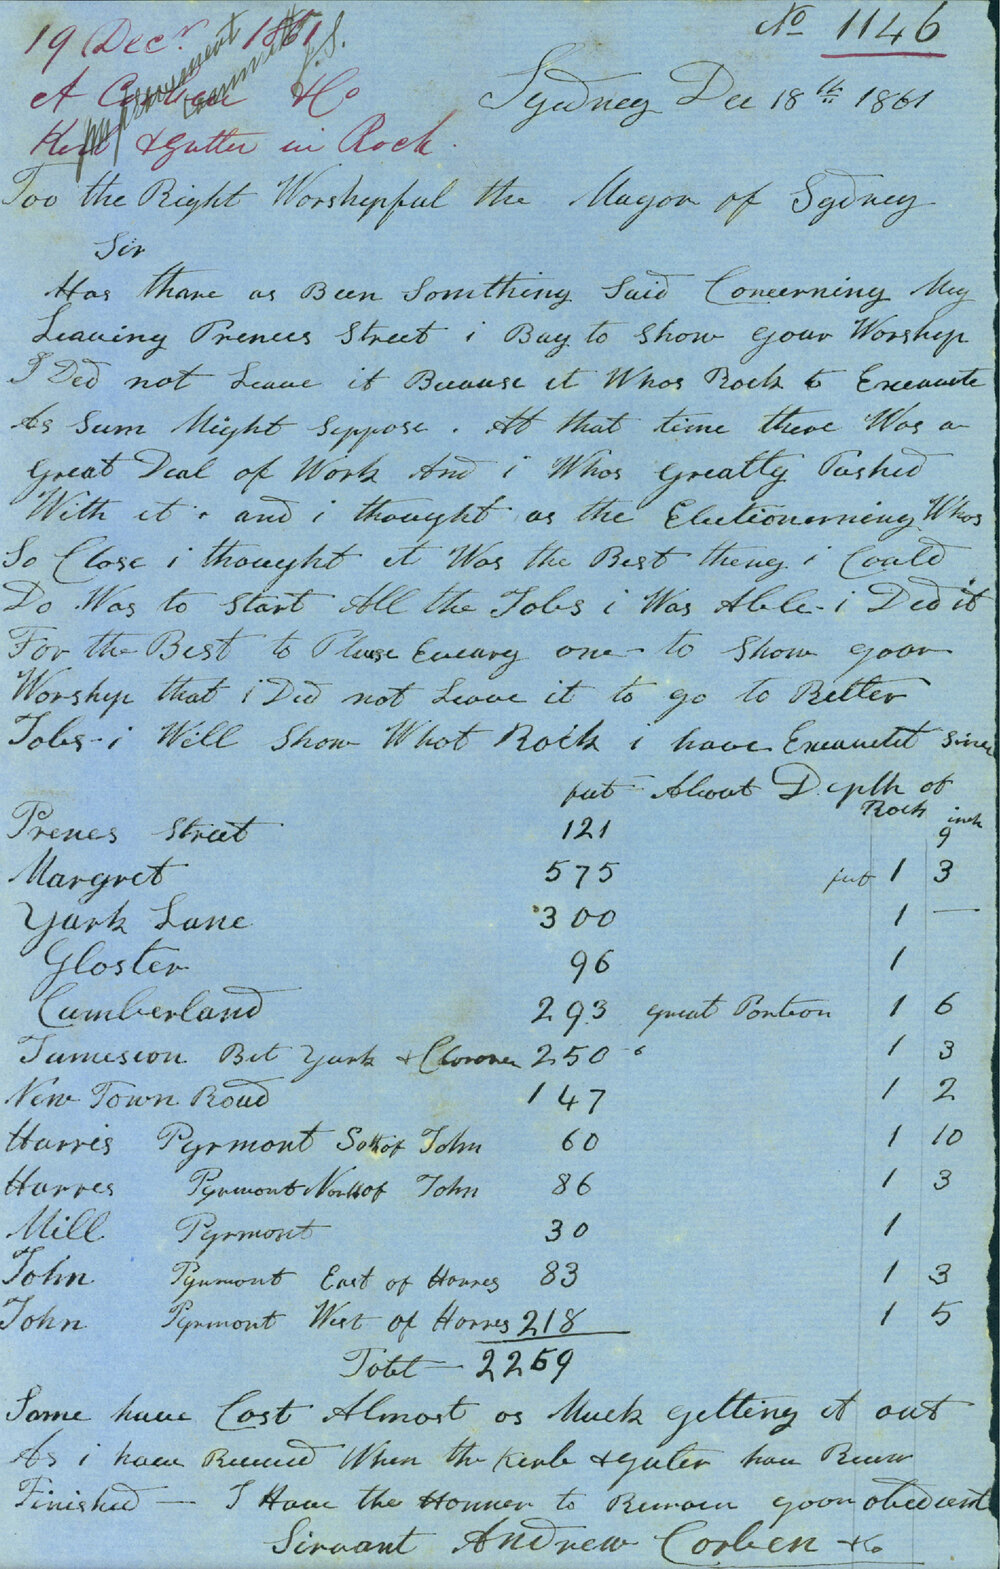 19 Decr. 1861
No 1146
Improvement Committee
J.S.
A Corben & Co
Kerb & Gutter in Rock.
Sydney Dec 18th 1861
Too the Right Worshepful the Mayor of Sydney
Sir
Has thare as Been Something Said Concerning My
Leaving Prences Street i Bag to Show your Worshep
I Ded not Leave it Because it Whos Rock to Excavate
As Sum Might Seppose. At that time there Was a
Great Deal of Work And i Whos Greatly Pushed
With it. and i thought as the Electionerning Whos
So Close i thought it Was the Best theng i Could
Do Was to Start All the Jobs i Was Able - i Ded it
For the Best to Please Eveary one - to Show your
Worshep that i Ded not Leave it to go to Better
Jobs - i Will Show What Rock i have Excavetet Since
feet About Depth of
Rock inch
Prences Street 121 9
Margret 575 feet 1 3
York Lane 300 1 —
Gloster 96 1
Cumberland 293 great Porteon 1 6
Jameson Bet York & Clarance 250 " 1 3
New Town Road 147 1 2
Harris Pyrmont South of John 60 1 10
Harres Pyrmont North of John 86 1 3
Mill Pyrmont 30 1
John Pyrmont East of Harres 83 1 3
John Pyrmont West of Harres 218 1 5
Totel — 2259
Some have Cost Almost as Much getting it out
As i have Receved When the Kerb & guter have Been
Finished — I Have the Honner to Remain your obedient
Sirvant Andrew Corben & Co